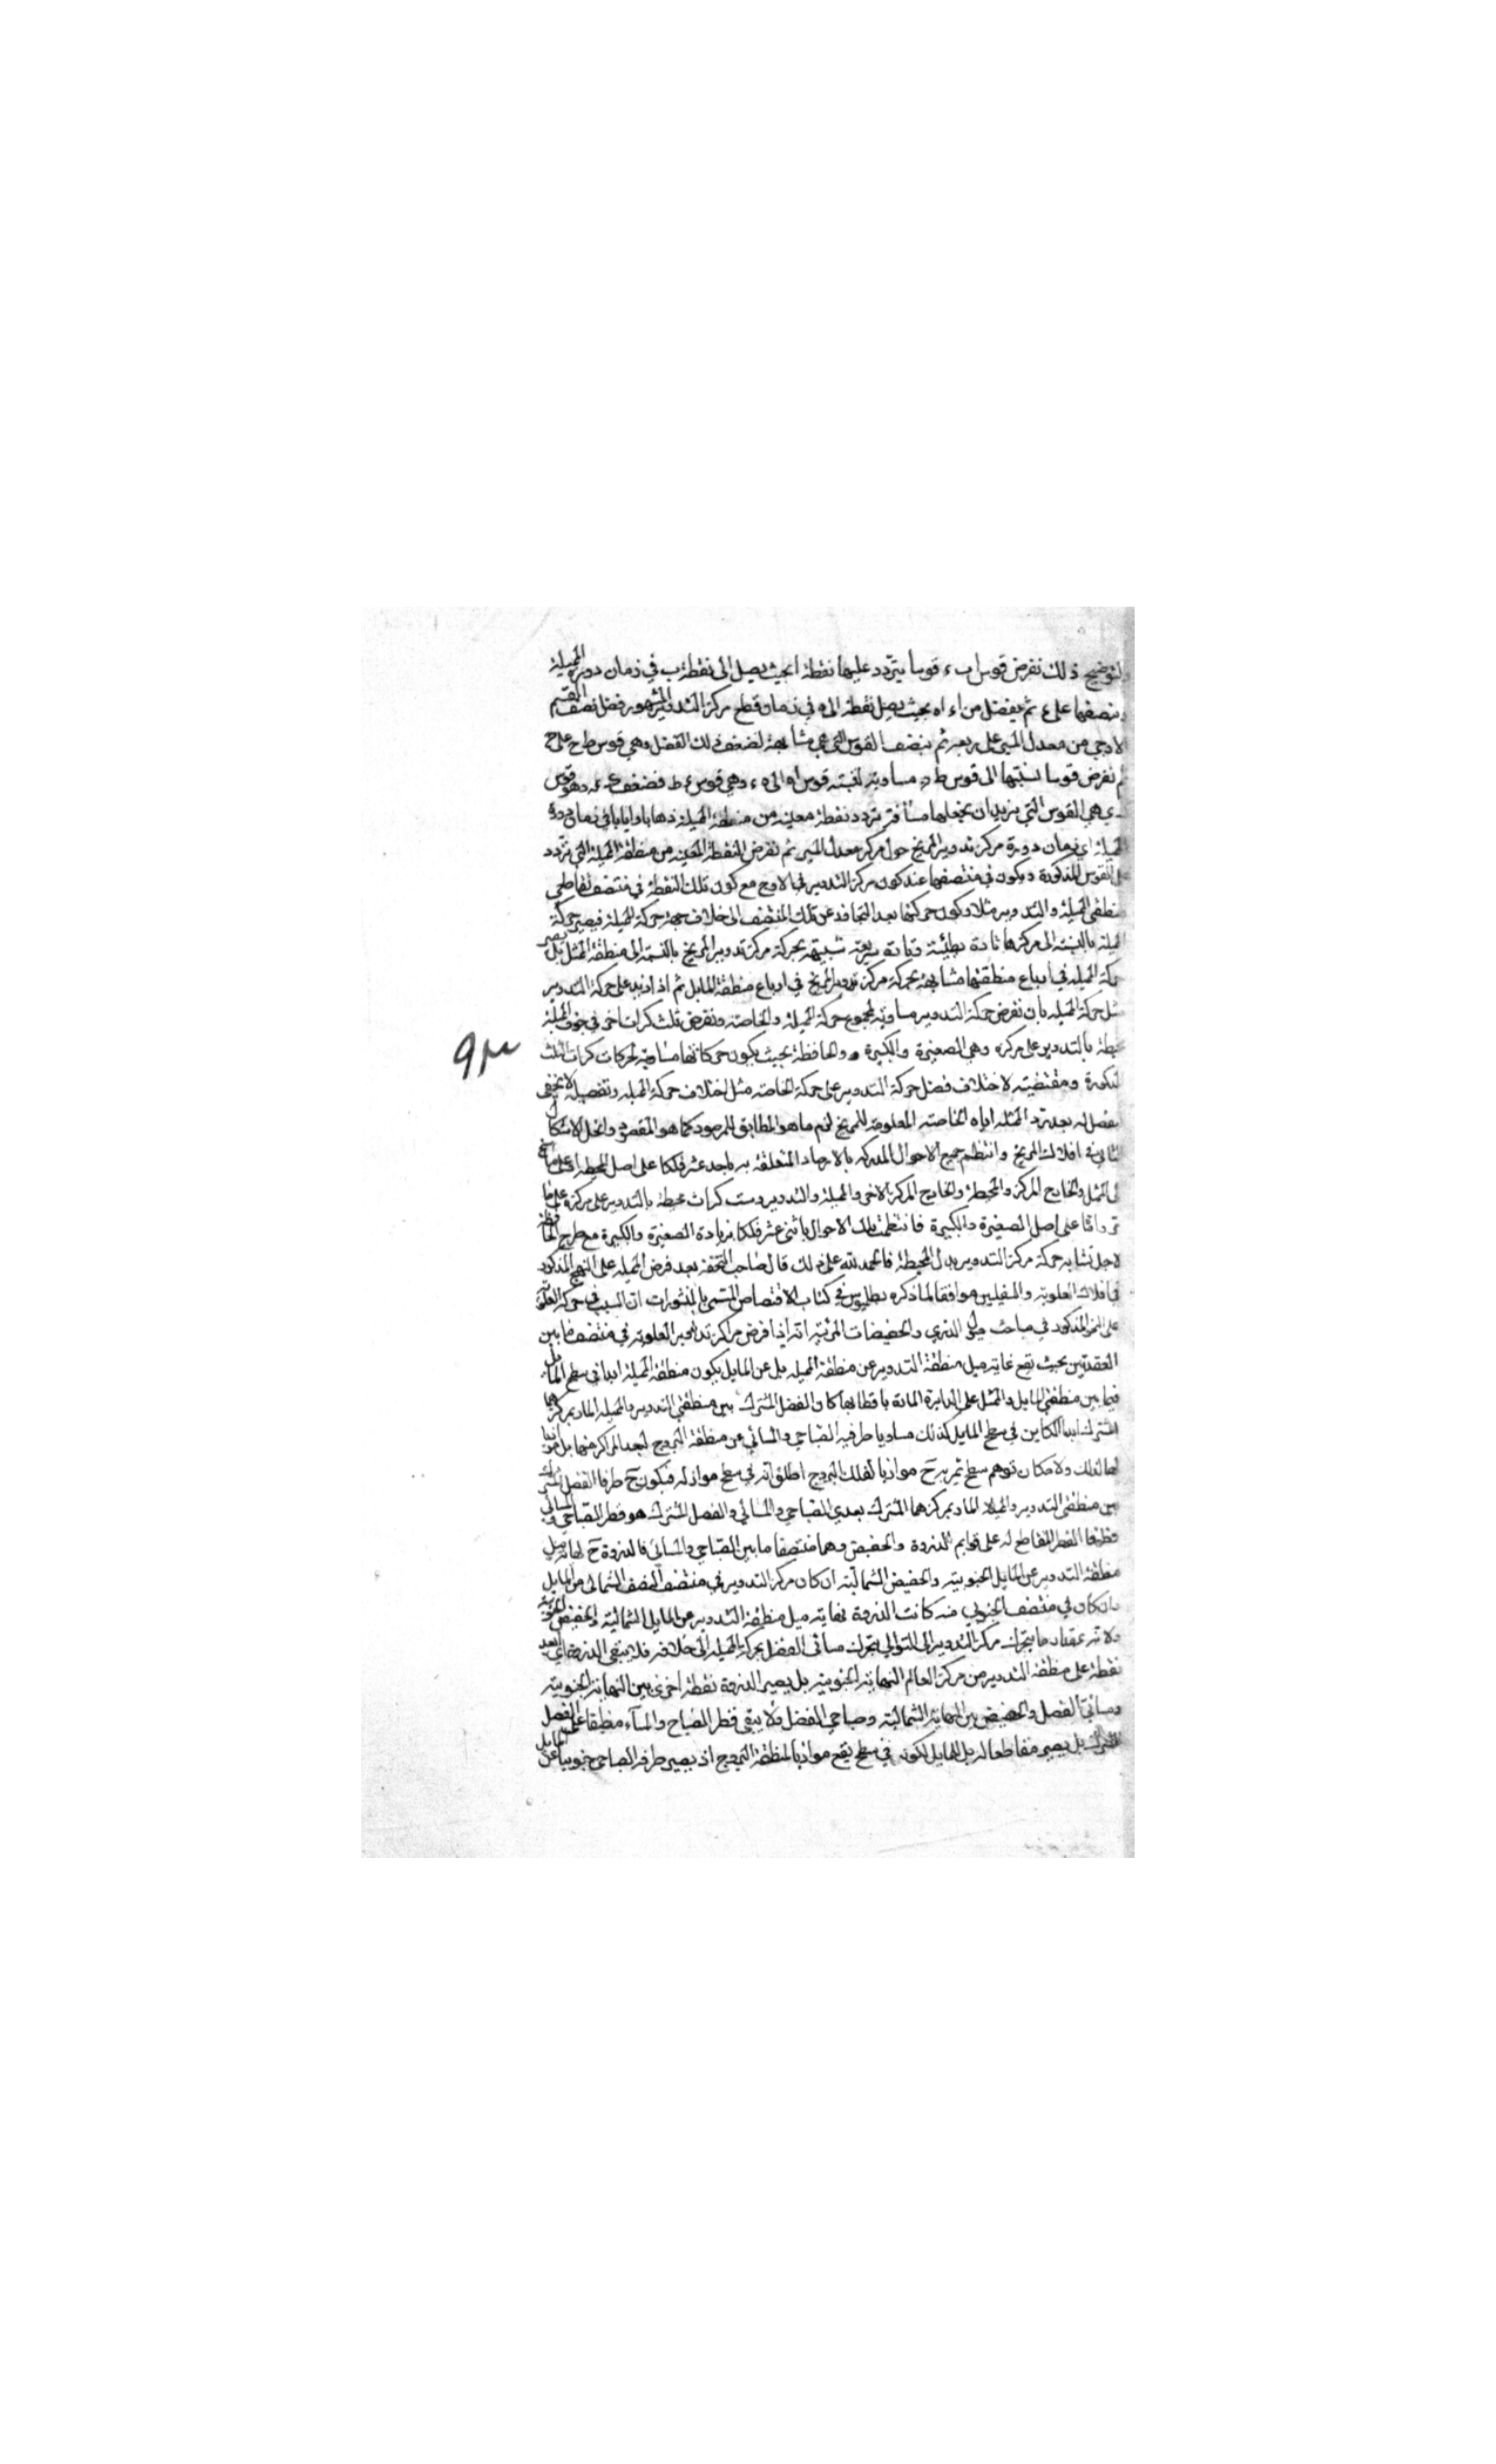 ولتوضيح ذلك نفرض قوس ا ب ء قوسا يتردد عليها نقطة ا بحيث يصل الى نقطة ب في زمان دورة المميلة
وننصفها على ء ثم يفصل من ا ء ا ه بحيث يصل نقطة ا الى ه في زمان قطع مركز التدوير المشهور فضل نصف القسم
الاوجي من معدل المسير على ربعه ثم ننصف القوس التي هي مشابهة لضعف ذلك الفضل وهي قوس ط ح على
ثم نفرض قوسا نسبتها الى قوس ط مساوية لنسبة قوس ا ه الى ه ء وهي قوس ط فضعف وهو قوس
ى هي القوس التي نريد ان نجعلها مسافة تردد نقطة معينة من منطقة المميلة ذهابا وايابا في زمان دورة
المميلة اي زمان دورة مركز تدوير المريخ حول مركز معدل المسير ثم نفرض النقطة المعينة من منطقة المميلة التي تتردد
على القوس المذكورة ويكون في منتصفها عند كون مركز التدوير في الاوج مع كون تلك النقطة في منتصف تقاطعي
منطقتي المميلة والتدوير مثلا وكون حركتها بعد التجافد عن تلك المنتصف الى خلاف جهة حركة المميلة فيصير حركة
المميلة بالنسبة الى مركزها تارة بطيئة وتارة سريعة شبيهة بحركة مركز تدوير المريخ بالنسبة الى منطقة الممثل بل يصير
حركة المميلة في ارباع منطقتها مشابهة بحركة مركز تدوير المريخ في ارباع منطقة المايل ثم اذا زيد على حركة التدوير
مثل حركة المميلة بان نفرض حركة التدوير مساوية لمجموع حركة المميلة والخاصة ونفرض ثلث كرات اخر في جوف المميلة
محيطة بالتدوير على مركزه وهي الصغيرة والكبيرة والحافظة بحيث يكون حركاتها مساوية لحركات كرات الثلث
المذكورة ومقتضية لاختلاف فضل حركة التدوير على حركة الخاصة مثل اختلاف حركة المميلة وتفصيله لا يخفى
يفضل له بعد رد المميلة اياه الخاصة المعلومة للمريخ لزم ما هو المطابق للمرصود كما هو المقصود وانحل الاشكال
الثاني في افلاك المريخ وانتظم جميع الاحوال المدركة بالارصاد المتعلقة به باحد عشر فلكا على اصل المحيطة
اي الممثل والخارج المركز والمحيطة والخارج المركز الاخر والمميلة والتدوير وست كرات محيطة بالتدوير على مركزه على ما
تر واما على اصل الصغيرة والكبيرة فانتظمت تلك الاحوال باثني عشر فلكا بزيادة الصغيرة والكبيرة مع طرح الحافظة
لاجل تشابه حركة مركز التدوير بدل المحيطة فالحمد لله على ذلك قال صاحب التحفة بعد فرض المميلة على النهج المذكور
في افلاك العلوية والسفليين موافقا لما ذكره بطليموس في كتاب الاقتصاص المسمى بالمنشورات ان السبب في حركة العلوية
على النحو المذكور في مباحث ميل الذرى والحضيضات المرئية انه اذا فرض مراكز تداوير العلوية في منتصف ما بين
العقدتين بحيث تقع غاية ميل منطقة التدوير عن منطقة المميلة بل عن المايل بكون منطقة المميلة ابدا في سطح المايل
فيما بين منطقتي المايل والممثل على الدايرة المارة باقطابها كان الفصل المشترك بين منطقتي التدوير والمميلة المار بمركزهما
المشترك ابدا الكاين في سطح المايل كذلك مساويا طرفيه الصباحي والمسائي عن منطقة البروج لبعد المراكز منها بل موازيا
لها لذلك ولامكان توهم سطح يمر به ح موازيا لفلك البروج اطلق انه في سطح مواز له فيكون ح طرفا الفصل المشترك
بين منطقتي التدوير والمميلة المار بمركزهما المشترك بعدي الصباحي والمسائي والفصل المشترك هو قطر الصباحي والمسائي
وطرفا القطر المقاطع له على قوايم الذروة والحضيض وهما منتصفا ما بين الصباحي والمسائي فالذروة ح نهاية ميل
منطقة التدوير عن المايل الجنوبية والحضيض الشمالية ان كان مركز التدوير في منتصف النصف الشمالي من المايل
وان كان في منتصف الجنوبي منه كانت الذروة نهاية ميل منطقة التدوير عن المايل الشمالية والحضيض الجنوبية
ولانه بمقدار ما يتحرك مركز التدوير الى التوالي يتحرك مسائي الفصل بحركة المميلة الى خلافه فلا يبقى الذروة اي ابعد
نقطة على منطقة التدوير من مركز العالم النهاية الجنوبية بل يصير الذروة نقطة اخرى بين النهاية الجنوبية
ومسائي الفصل والحضيض بين النهاية الشمالية وصباحي الفصل ولا يبقى قطر الصباح والمساء منطبقا على الفصل
المشترك بل يصير مقاطعا له بل للمايل لكونه في سطح يقع موازيا لمنطقة البروج اذ يصير طرفه الصباحي جنوبيا عن المايل
۹۳